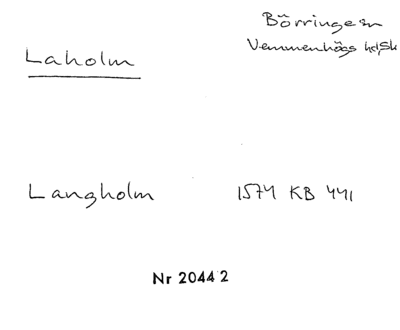 Laholm
Börringe sn
Vemmenhögs hd, Sk
Langholm 1574 KB 441
Nr 20442